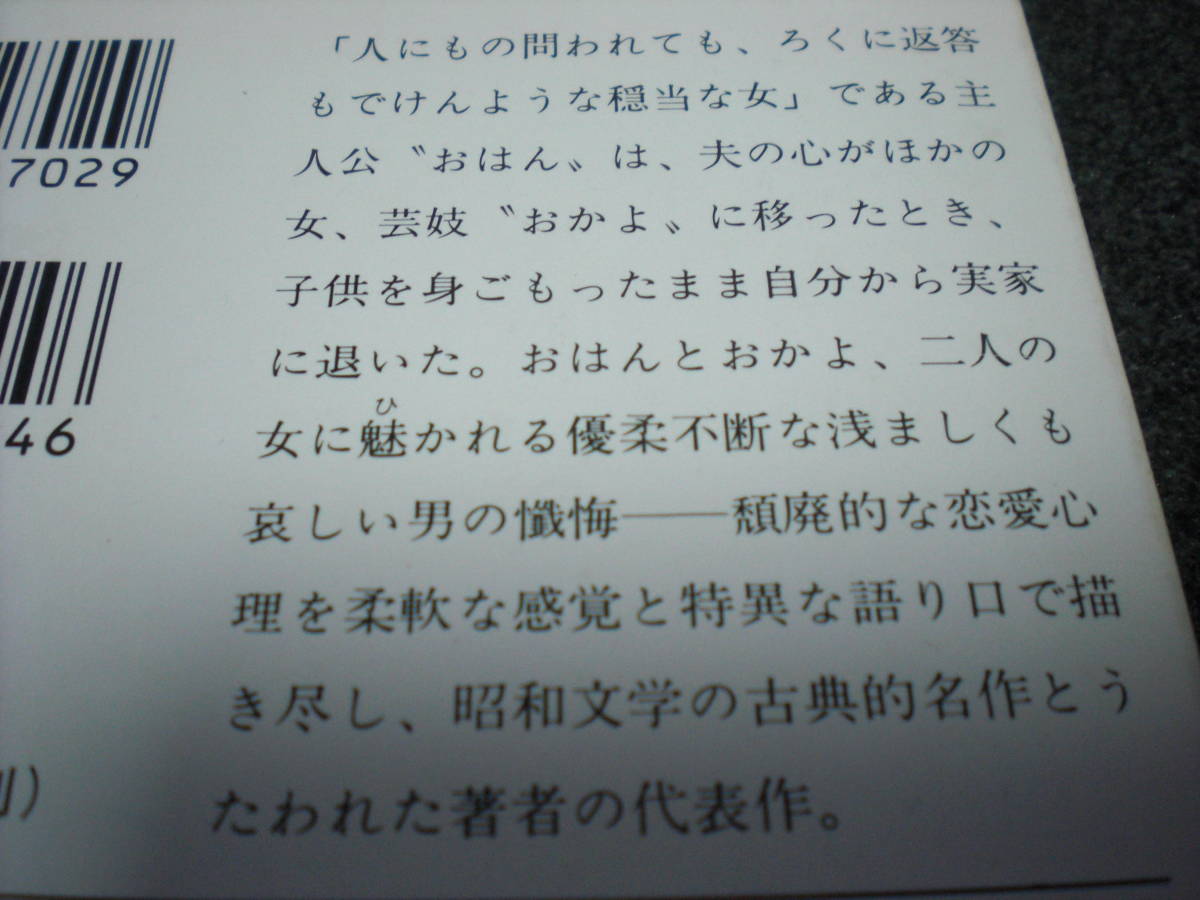 「人にもの問われても、ろくに返答
もでけんような穏当な女」である主
人公〝おはん〟は、夫の心がほかの
女、芸妓〝おかよ〟に移ったとき、
子供を身ごもったまま自分から実家
に退いた。おはんとおかよ、二人の
女に魅かれる優柔不断な浅ましくも
ひ
哀しい男の懺悔――頽廃的な恋愛心
理を柔軟な感覚と特異な語り口で描
き尽し、昭和文学の古典的名作とう
たわれた著者の代表作。
7029
46
)